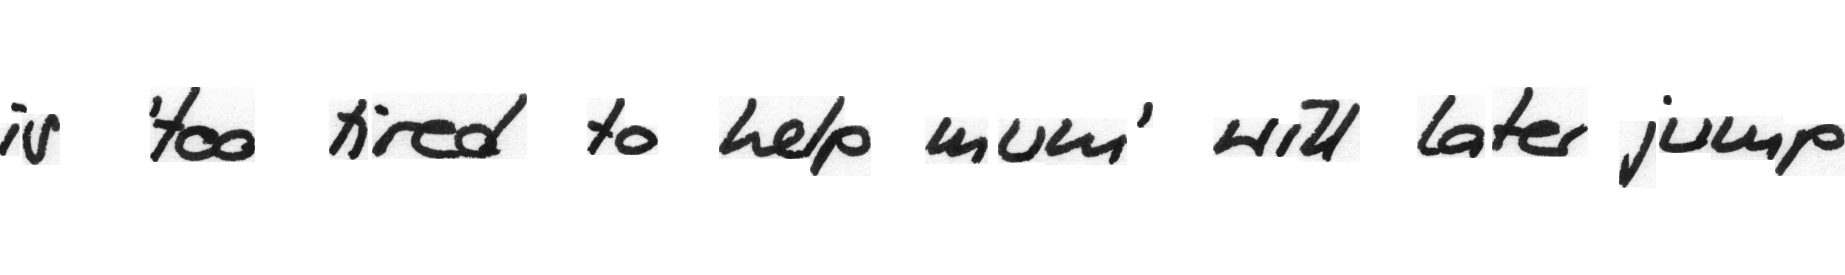 is 'too tired to help mum' will later jump